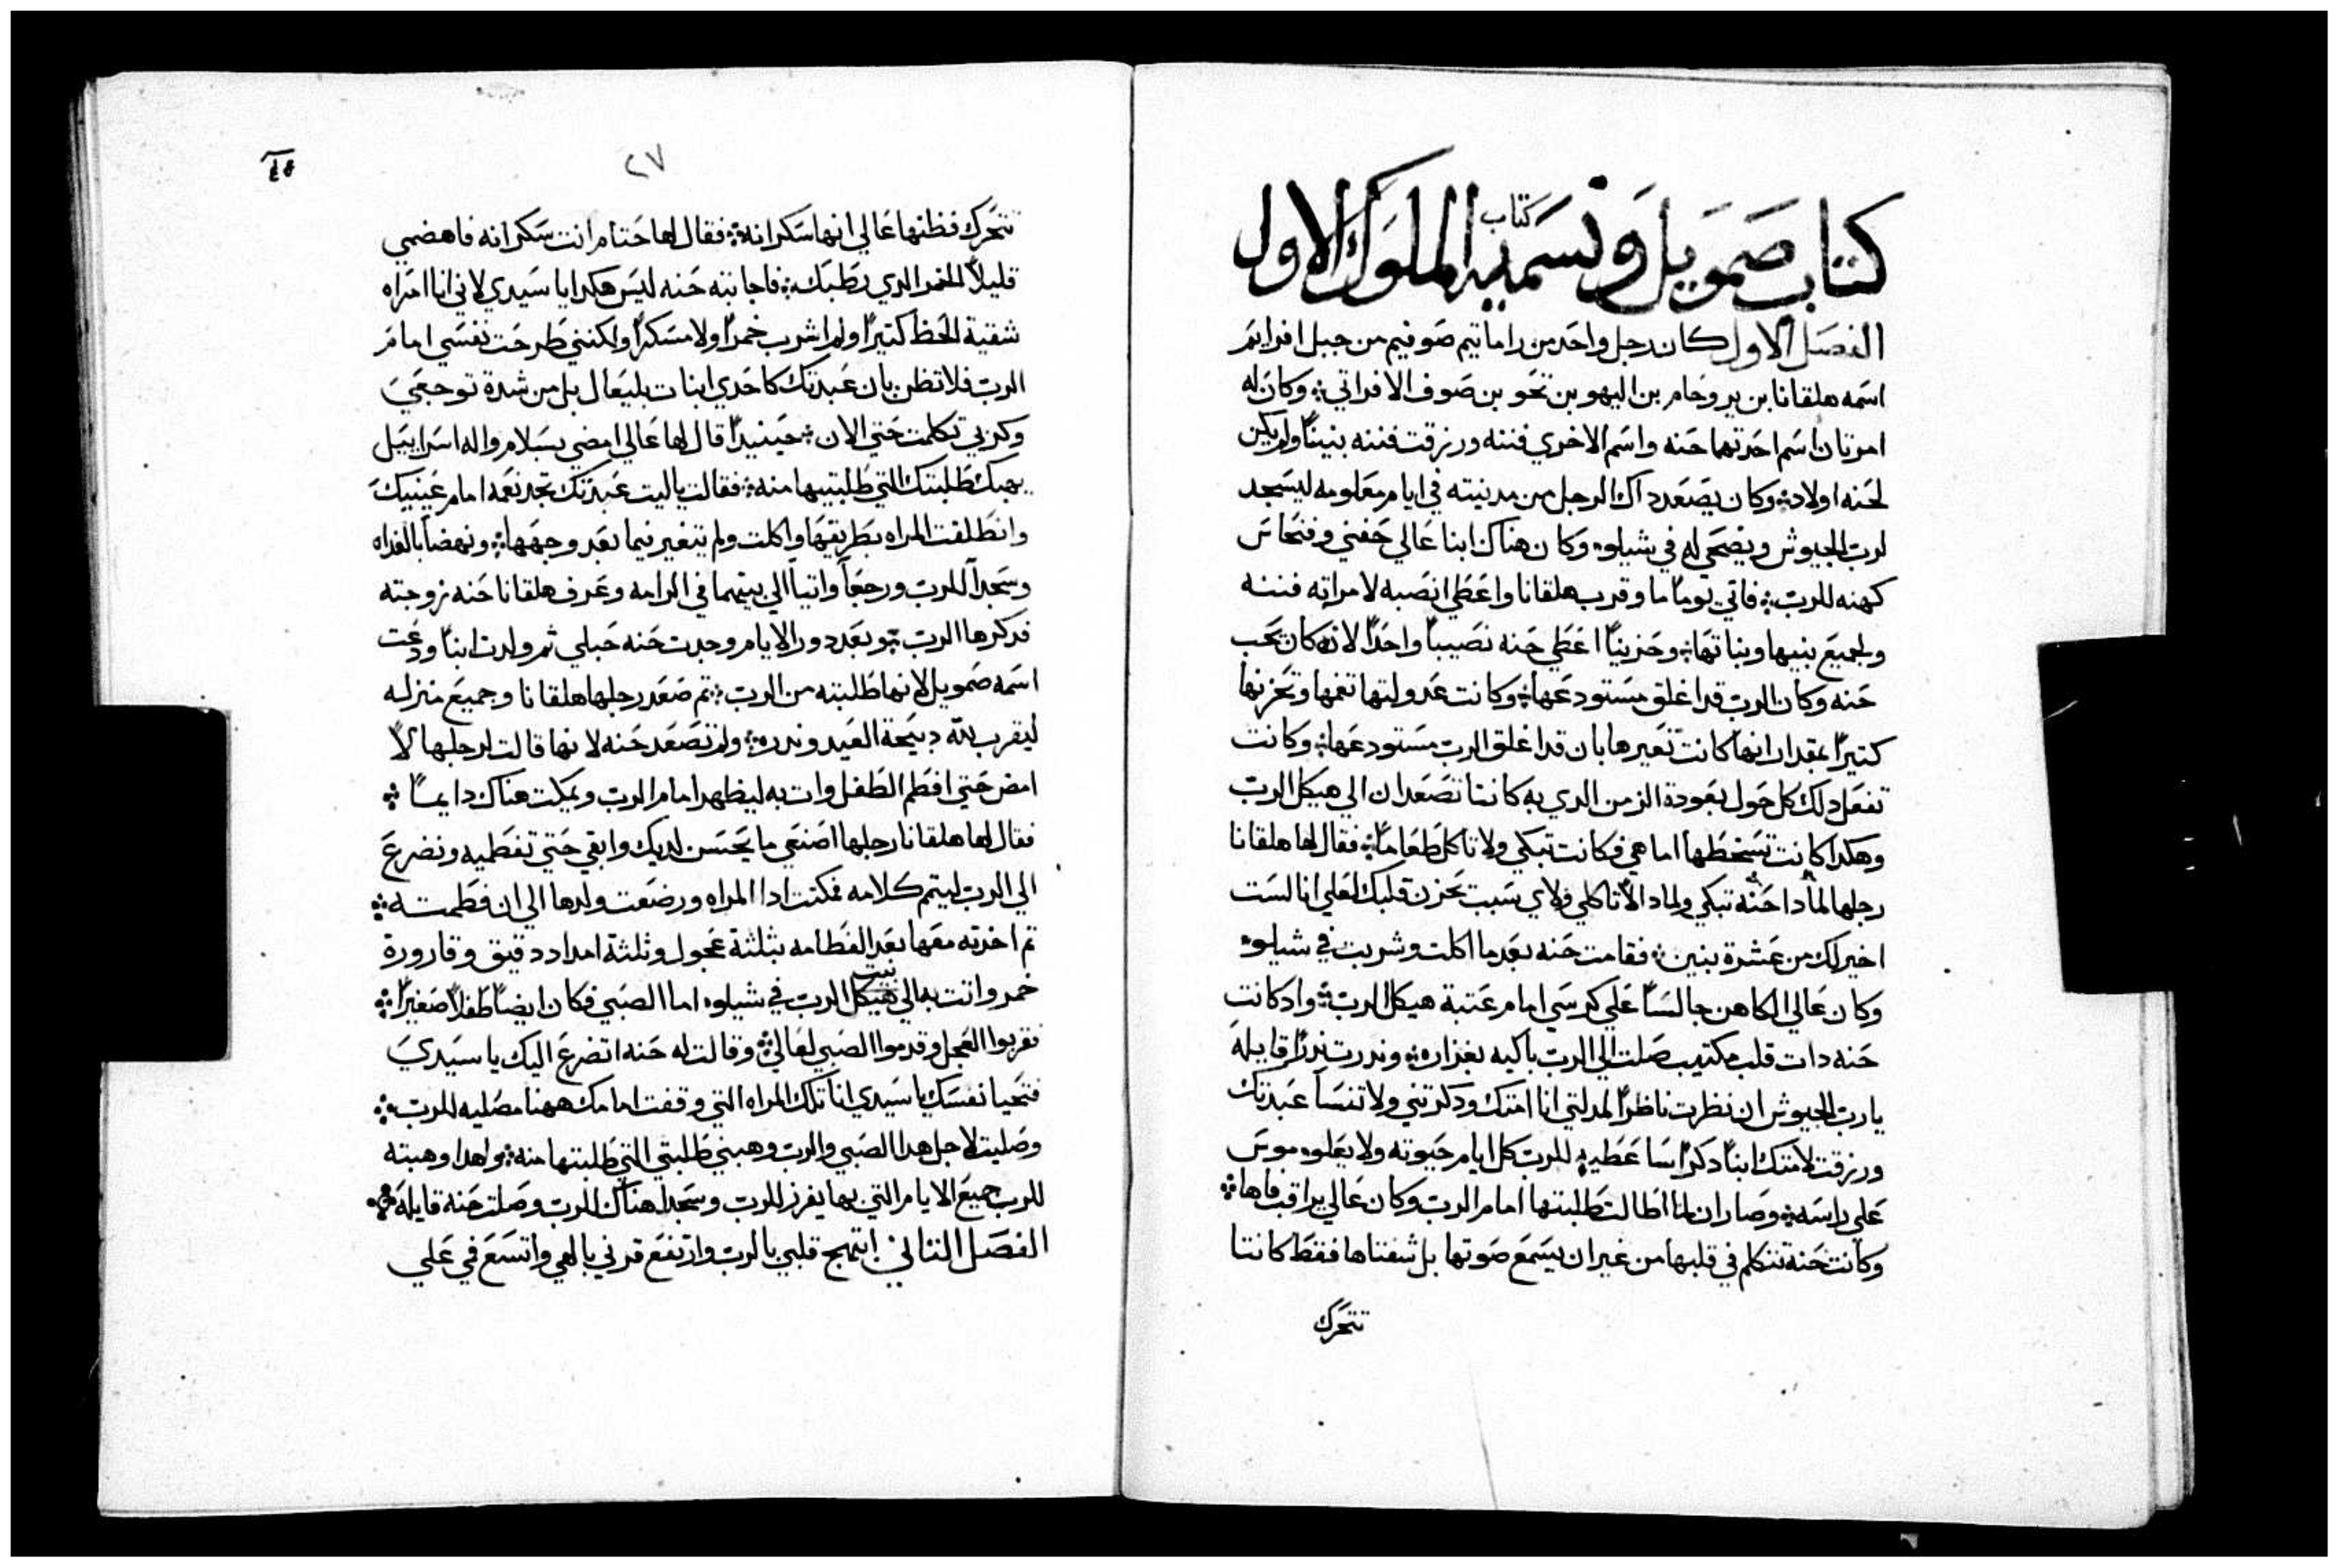 كتاب صمويل وتسميه كتاب الملوك الاول
الفصل الاول كان رجل واحد من راماتيم صوفيم من جبل افرايم
اسمه هلقانا بن يروحام بن اليهو بن تحو بن صوف الافراتي ؞ وكان له
امرتان اسم احدتهما حنه واسم الاخري فننه ورزقت فننه بنيناً ولم يكن
لحنه اولاد ؞ وكان يصعد داك الرجل من مدينته في ايام معلومه ليسجد
لرب الجيوش ويضحي له في شيلوه وكان هناك ابنا عالي حفني وفنحاس
كهنه للرب ؞ فاتي يوماً ما وقرب هلقانا واعطي انصبه لامراته فننه
ولجميع بنيها وبناتها ؞ وحزيناً اعطي حنه نصيباً واحداً لانه كان يحب
حنه وكان الرب قد اغلق مستودعها ؞ وكانت عدولتها تغمها وتحزنها
كتيراً بمقدار انها كانت تعيرها بان قد اغلق الرب مستودعها ؞ وكانت
تفعل دلك كل حول بعودة الزمن الدي به كانتا تصعدان الي هيكل الرب
وهكدا كانت تسخطها اما هي فكانت تبكي ولا تاكل طعاماً ؞ فقال لها هلقانا
رجلها لمادا حنه تبكي ولمادا لا تاكلي ولاي سبب يحزن قلبك لعلي انا لست
اخير لك من عشرة بنين ؞ فقامت حنه بعد ما اكلت وشربت في شيلوه
وكان عالي الكاهن جالساً علي كرسي امام عتبة هيكل الرب ؞ واد كانت
حنه دات قلب مكتيب صلت الي الرب باكيه بغزاره ؞ وندرت ندراً قايلة
يا رب الجيوش ان نظرت ناظراً لمدلتي انا امتك ودكرتني ولا تنسا عبدتك
ورزقت لامتك ابناً دكراً ساعطيه للرب كل ايام حيوته ولا يعلوه موس
علي راسه ؞ وصار ان لما اطالت طلبتها امام الرب وكان عالي يراقب فاها ؞
وكانت حنة تتكلم في قلبها من غير ان يسمع صوتها بل شفتاها فقط كانتا
تتحرك
٢٧
تتحرك فظنها عالي انها سكرانه ؞ فقال لها حتام انت سكرانه فاهضمي
قليلاً الخمر الدي يطبك ؞ فاجابته حنه ليس هكدا يا سيدي لاني انا امراه
شقية الحظ كتيراً ولم اشرب خمراً ولا مسكراً ولكنني طرحت نفسي امام
الرب فلا تظن بان عبدتك كاحدي ابنات بليعال بل من شدة توجعي
وكربي تكلمت حتي الان ؞ حينيداً قال لها عالي امضي بسلام واله اسراييل
يهبك طلبتك التي طلبتيها منه ؞ فقالت يا ليت عبدتك تجد نعمه امام عينيك
وانطلقت المراه بطريقها واكلت ولم يتغير فيما بعد وجهها ؞ ونهضا بالغداه
وسجدا للرب ورجعا واتيا الي بيتهما في الرامه وعرف هلقانا حنه زوجته
فدكرها الرب ؞ وبعد دور الايام وجدت حنه حبلي ثم ولدت ابناً ودعت
اسمه صمويل لانها طلبته من الرب ؞ تم صعد رجلها هلقانا وجميع منزله
ليقرب لله دبيحة العيد وندره ؞ ولم تصعد حنه لانها قالت لرجلها لا
امض حتي افطم الطفل وات به ليظهر امام الرب ويمكت هناك دايماً ؞
فقال لها هلقانا رجلها اصنعي ما يحسن لديك وابقي حتي تفطميه ونضرع
الي الرب ليتم كلامه فمكتت ادا المراه ورضعت ولدها الي ان فطمته ؞
تم اخدته معها بعد الفطامه بثلثة عجول وثلثة امداد دقيق وقارورة
خمر واتت به الي هيكل بيت الرب في شيلوه اما الصبي فكان ايضاً طفلاً صغيراً ؞
فقربوا العجل وقدموا الصبي لعالي ؞ وقالت له حنه اتضرع اليك يا سيدي
فتحيا نفسك يا سيدي انا تلك المراه التي وقفت امامك ههنا مصليه للرب ؞
وصليت لاجل هدا الصبي والرب وهبني طلبتي التي طلبتها منه ؞ ولهدا وهبته
للرب جميع الايام التي بها يفرز للرب وسجدا هناك للرب وصلت حنة قايلة ؞
الفصل التاني ابتهج قلبي بالرب وارتفع قرني بالهي واتسع في علي